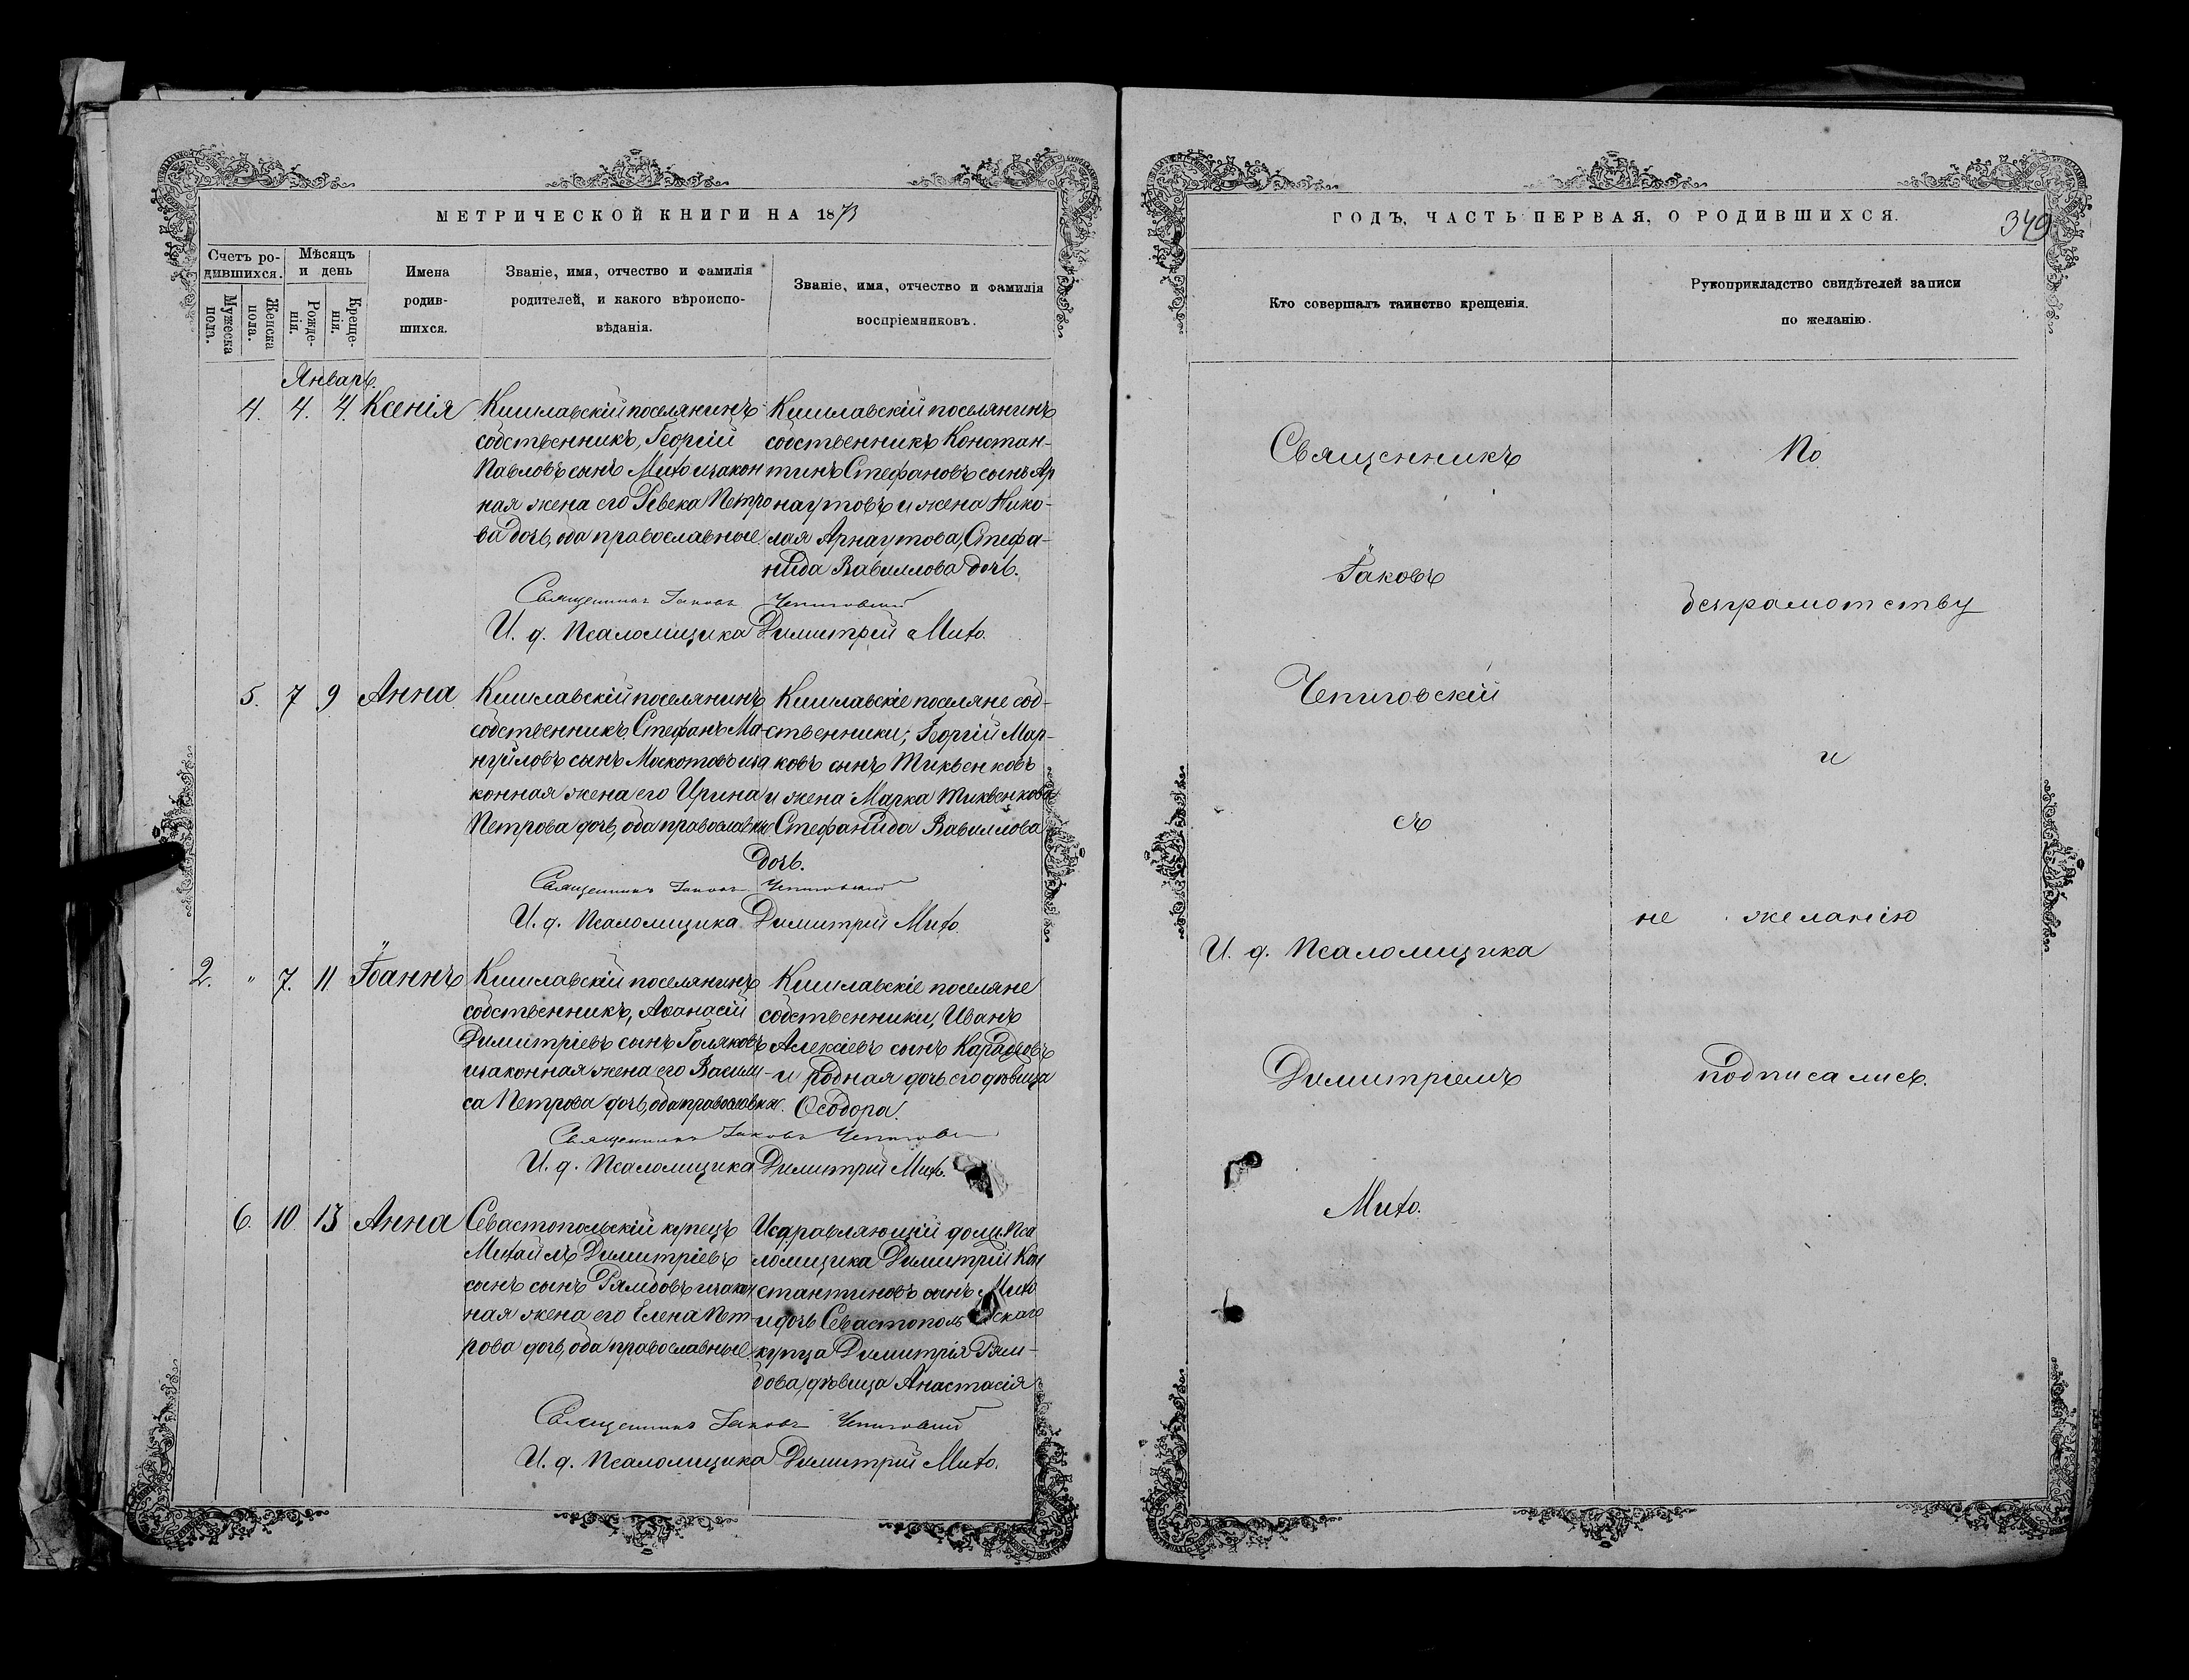 МЕТРИЧЕСКОЙ КНИГИ НА 1873
Счетъ ро-
дившихся.
Мужеска
пола.
Женска
пола.
Мѣсяцъ
и день
Рожде-
нія.
Креще-
нія.
Имена
родив-
шихся.
Званіе, имя, отчество и фамилія
родителей, и какого вѣроиспо-
вѣданія.
Званіе, имя, отчество и фамилія
воспріемниковъ.
Январь.
4. 4. 4. Ксенія
Кишлавскій поселянинъ
собственникъ, Георгій
Павловъ сынъ Мито изакон
ная жена его Ревека Петро
ва дочь, оба православные.
Кишлавскій поселянинъ
собственникъ Констан-
тинъ Стефановъ сынъ Ар
наутовъ и жена Нико-
лая Арнаутова, Стефа-
нида Вавиллова дочь.
Священникъ Іаковъ Чепиговскій
И. д. Псаломщика Димитрій Мито.
5. 7 9 Анна
Кишлавскій поселянинъ
собственникъ Стефанъ Ма-
нуиловъ сынъ Москотовъ иза
конная жена его Ирина
Петрова дочь, оба православны
Кишлавскіе поселяне соб-
ственники; Георгій Мар-
ковъ сынъ Тиквенковъ
и жена Марка Тиквенкова
Стефанида Вавиллова
дочь.
Священникъ Іаковъ Чепиговскій
И. д. Псаломщика Димитрій Мито
2. " 7. 11 Іоаннъ
Кишлавскій поселянинъ
собственникъ, Аѳанасій
Димитріевъ сынъ Голяковъ
изаконная жена его Васили-
са Петрова дочь, оба православны.
Кишлавскіе поселяне
собственники, Иванъ
Алексіевъ сынъ
и родная дочь его дѣвица
Ѳеодора.
Священникъ Іаковъ Чепигов
И. д. Псаломщика Димитрій Мито.
6. 10. 13 Анна
Севастопольскій купецъ
Михаилъ Димитріевъ
сынъ сынъ Рямбовъ изакон
ная жена его Елена Пет-
рова дочь, оба православные
Исправляющій долж. Пса
ломщика Димитрій Кон
стантиновъ сынъ Мито
и дочь Севастопольскаго
купца Димитрія Рям-
бова, дѣвица Анастасія
Священникъ Іаковъ Чепиговскій
И. д. Псаломщика Димитрій Мито.
ГОДЪ, ЧАСТЬ ПЕРВАЯ, О РОДИВШИХСЯ.
349
Кто совершалъ таинство крещенія.
Рукоприкладство свидѣтелей записи
по желанію.
Священникъ
Іаковъ
Чепиговскій
съ
И. д. Псаломщика
Димитріемъ
Мито.
По
безграмотству
и
не желанію
подписались.